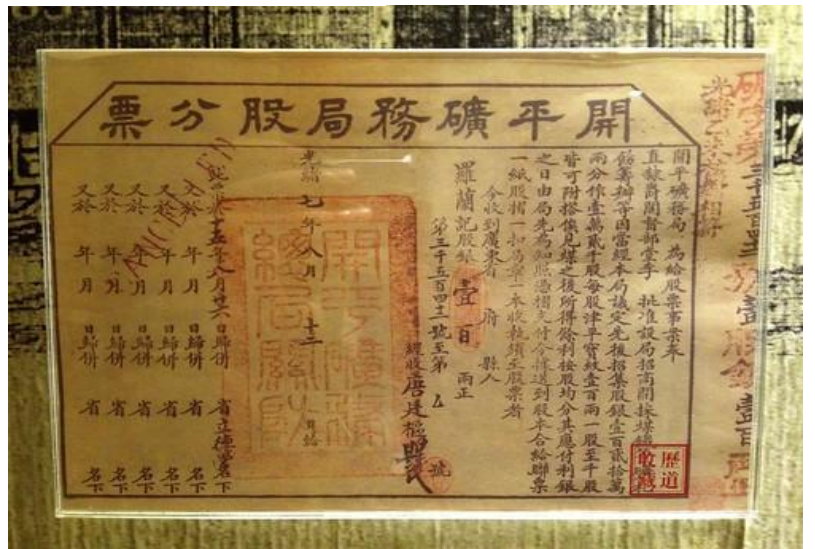 開平礦務局股分票
開平礦務局 為給股票事案奉
直隸爵閣督部堂李 批准設局招商開採煤鐵
飭籌辦等因當經本局議定先後招集股銀壹百貳拾萬
兩分作壹萬貳千股每股津平寶紋壹百兩一股至千股
皆可附搭俟見煤之後所得餘利按股均分其應付利銀
之日由局先為知照憑摺支付今將送到股本合給聯票
一紙股摺一扣局章一本收執須至股票者
今收到廣東省 府 縣人
羅蘭記股銀 壹百 兩正
第三千五百四十二號至第 號
經收 唐廷樞
光緒七年八月 十三
開平礦務總局關防
年八月 日歸併 省 名下
又於 年 月 日歸併 省 名下
又於 年 月 日歸併 省 名下
又於 年 月 日歸併 省 名下
又於 年 月 日歸併 省 名下
又於 年 月 日歸併 省 名下
CANCELLED
壹股銀壹百兩
歷道
收藏